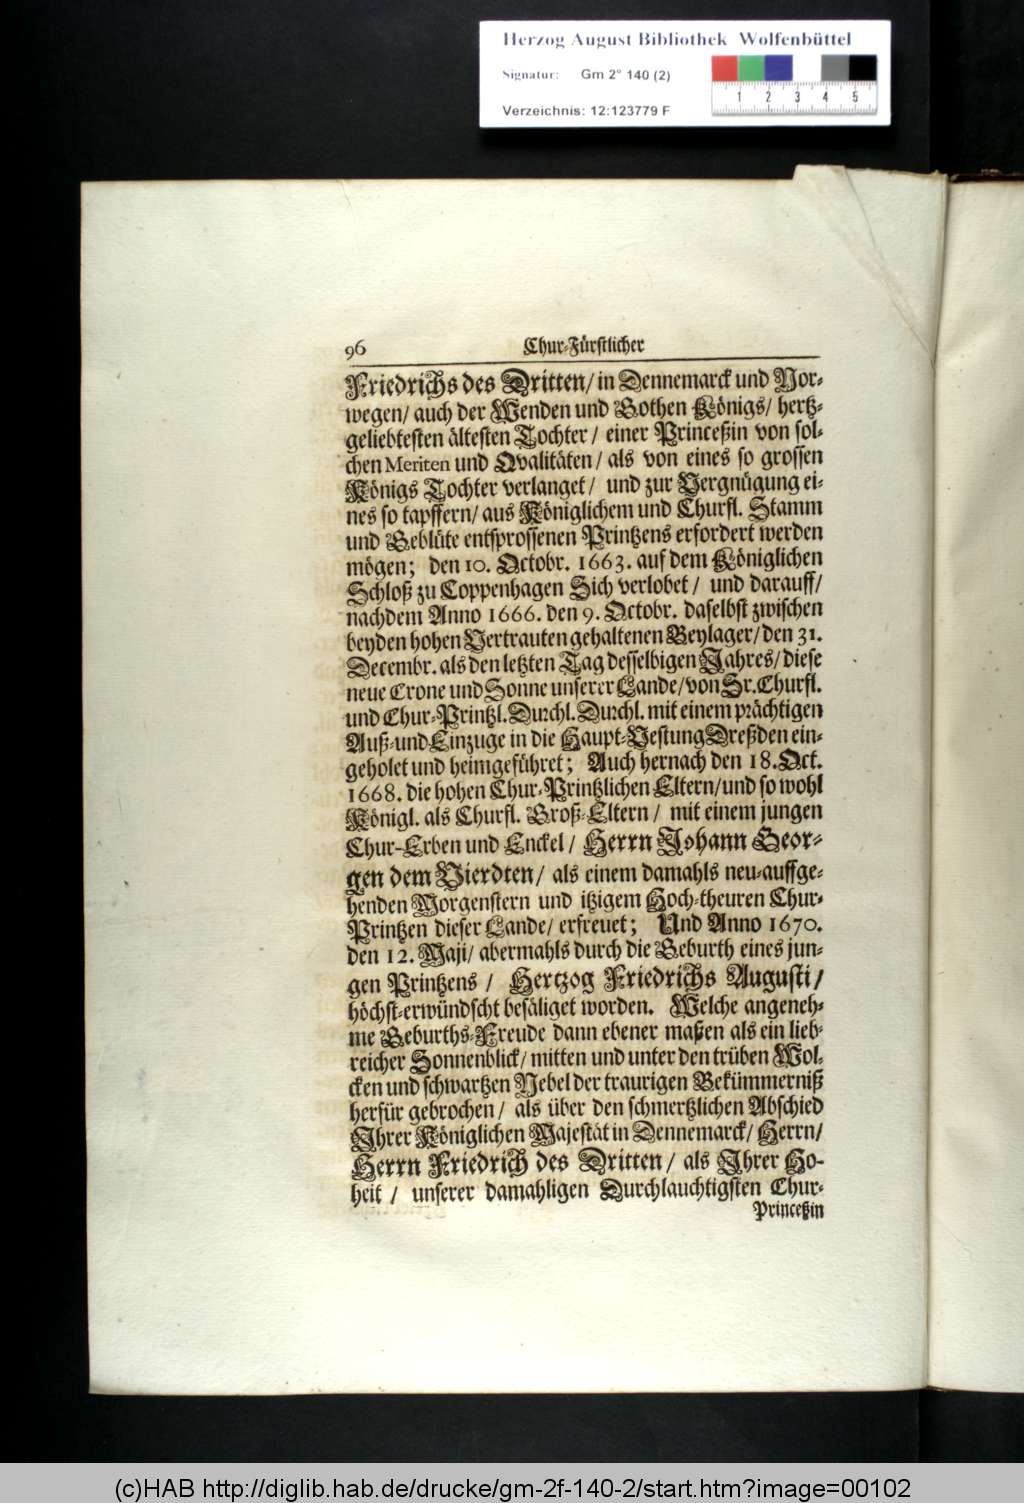 Herzog August Bibliothek Wolfenbüttel
Signatur: Gm 2° 140 (2)
Verzeichnis: 12:123779 F
1 2 3 4 5
96 Chur-Fürstlicher
Friedrichs des Dritten/ in Dennemarck und Nor-
wegen/ auch der Wenden und Gothen Königs/ hertz-
geliebtesten ältesten Tochter/ einer Princeßin von sol-
chen Meriten und Qvalitäten/ als von eines so grossen
Königs Tochter verlanget/ und zur Vergnügung ei-
nes so tapffern/ aus Königlichem und Churfl. Stamm
und Geblüte entsprossenen Printzens erfordert werden
mögen; den 10. Octobr. 1663. auf dem Königlichen
Schloß zu Coppenhagen Sich verlobet/ und darauff/
nachdem Anno 1666. den 9. Octobr. daselbst zwischen
beyden hohen Vertrauten gehaltenen Beylager/ den 31.
Decembr. als den letzten Tag desselbigen Jahres/ diese
neue Crone und Sonne unserer Lande/ von Sr. Churfl.
und Chur-Printzl. Durchl. Durchl. mit einem prächtigen
Auß-und Einzuge in die Haupt-Vestung Dreßden ein-
geholet und heimgeführet; Auch hernach den 18. Oct.
1668. die hohen Chur-Printzlichen Eltern/ und so wohl
Königl. als Churfl. Groß-Eltern/ mit einem jungen
Chur-Erben und Enckel/ Herrn Johann Geor-
gen dem Vierdten/ als einem damahls neu-auffge-
henden Morgenstern und itzigem Hoch-theuren Chur-
Printzen dieser Lande/ erfreuet; Und Anno 1670.
den 12. Maji/ abermahls durch die Geburth eines jun-
gen Printzens/ Hertzog Friedrichs Augusti/
höchst-erwündscht besäliget worden. Welche angeneh-
me Geburths-Freude dann ebener maßen als ein lieb-
reicher Sonnenblick/ mitten und unter den trüben Wol-
cken und schwartzen Nebel der traurigen Bekümmerniß
herfür gebrochen/ als über den schmertzlichen Abschied
Ihrer Königlichen Majestät in Dennemarck/ Herrn/
Herrn Friedrich des Dritten/ als Ihrer Ho-
heit/ unserer damahligen Durchlauchtigsten Chur-
Princeßin
(c)HAB http://diglib.hab.de/drucke/gm-2f-140-2/start.htm?image=00102